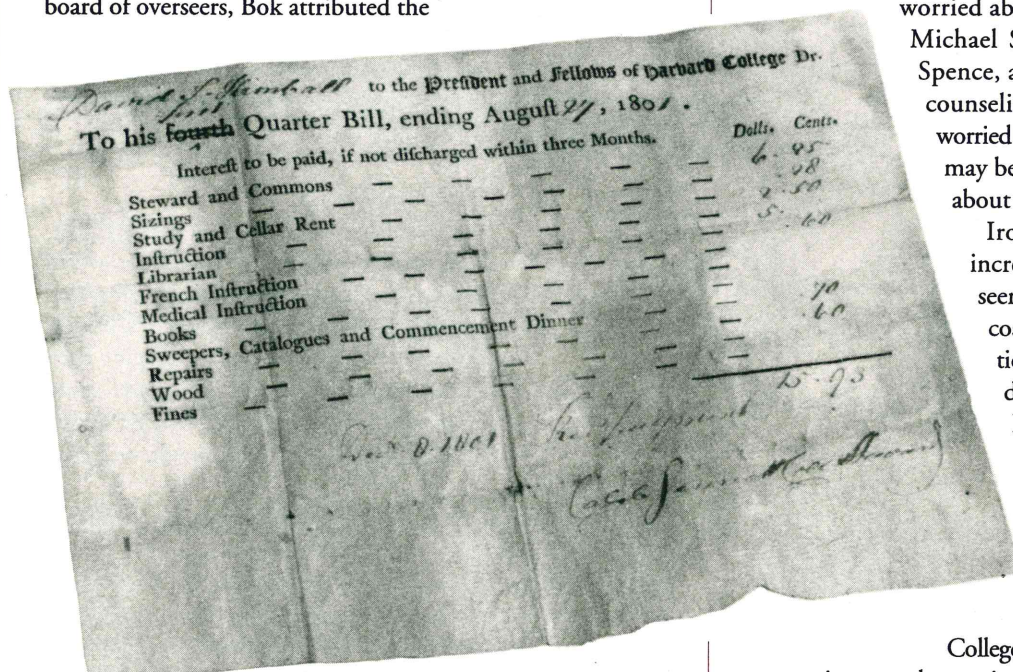 board of overseers, Bok attributed the
David S. Kimball to the Preſident and Fellows of Harvard College Dr.
To his fourth Quarter Bill, ending Auguſt 27, 1801.
Intereſt to be paid, if not diſcharged within three Months.
Dolls. Cents.
Steward and Commons — — — — 6. 45
Sizings — — — — — — .28
Study and Cellar Rent — — — — 2. 50
Inſtruction — — — — — — 5.
Librarian — — — — — — .60
French Inſtruction — — — — —
Medical Inſtruction — — — — —
Books — — — — — —
Sweepers, Catalogues and Commencement Dinner — — — .70
Repairs — — — — — — .60
Wood — — — — — —
Fines — — — — — —
8. 1801
Caleb
worried ab
Michael S
Spence, a
counseli
worried
may be
about
Iro
incre
seen
coa
tio
d
College